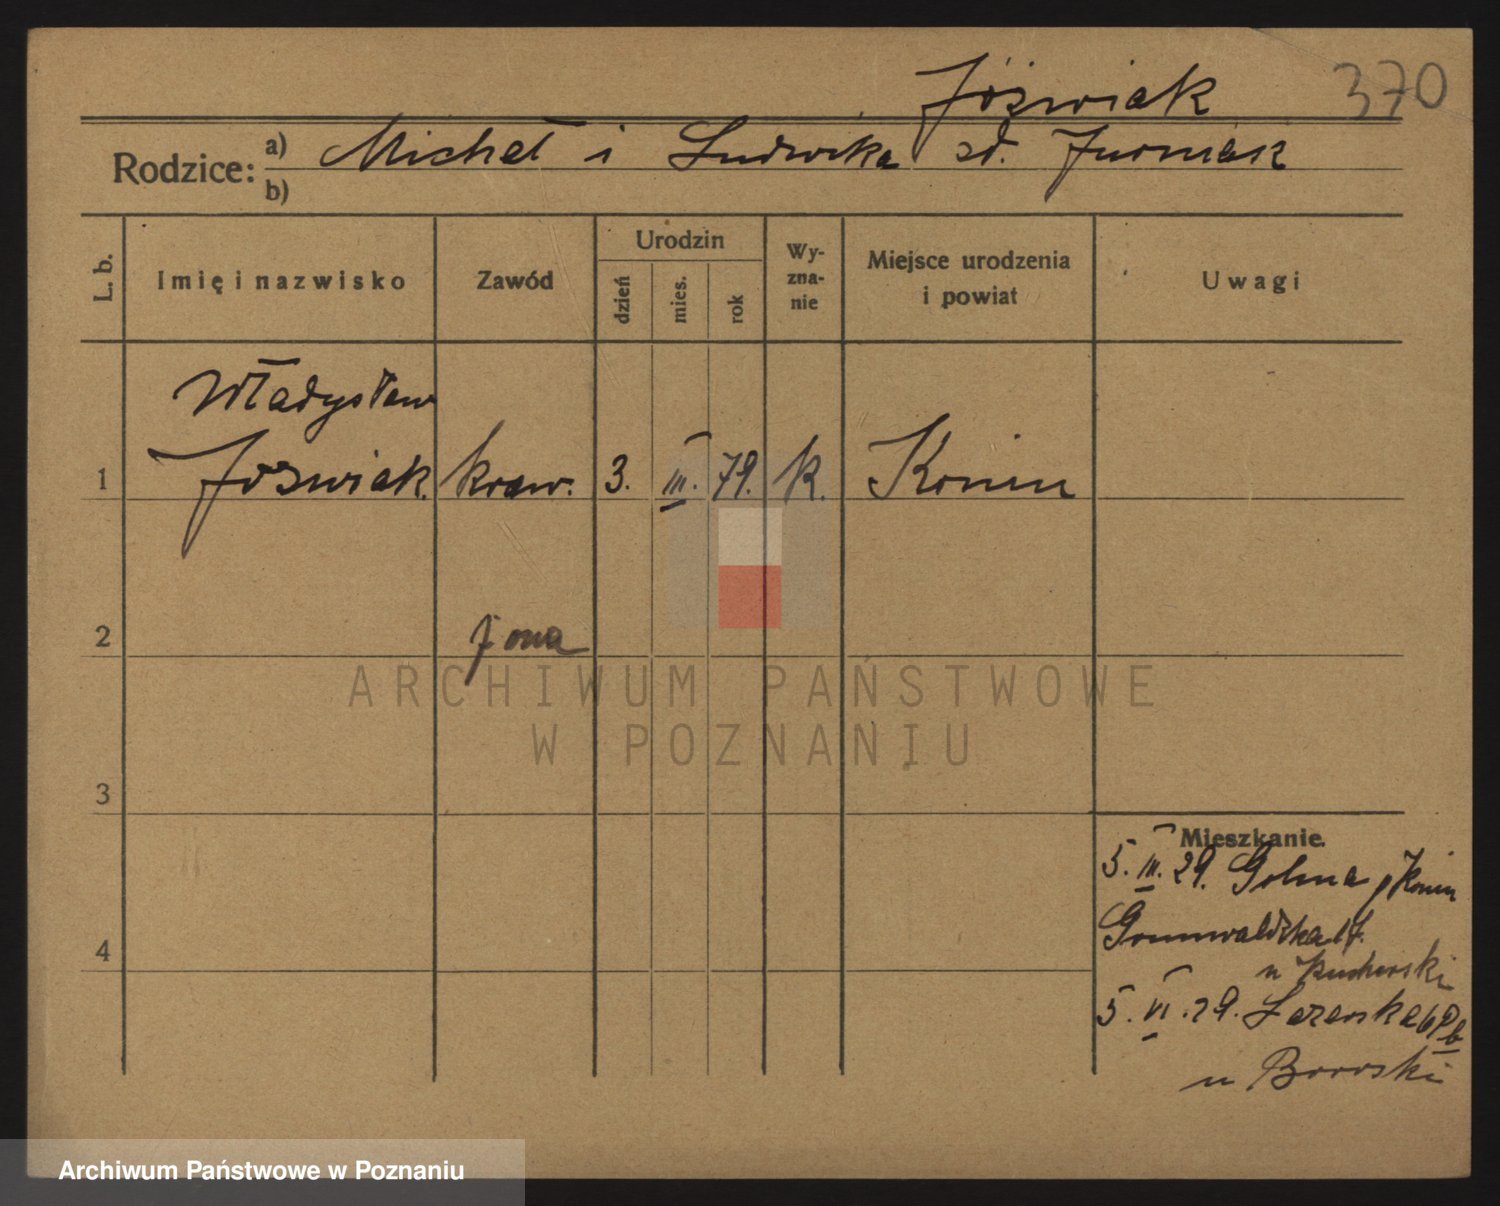 Jóźwiak 370
Rodzice: a) Michał i Ludwika zd.
b)
L. b. Imię i nazwisko Zawód Urodzin dzień mies. rok Wy-zna-nie Miejsce urodzenia i powiat Uwagi
Władysław
1 Jozwiak. kraw. 3. III. 79. k. Konin
2 żona
ARCHIWUM PAŃSTWOWE
W POZNANIU
3
Mieszkanie.
5. III. 29. Golina p Konin
4 Grunwaldzka 17.
u
5. VI. 29. Łazarska
u Boroski
Archiwum Państwowe w Poznaniu